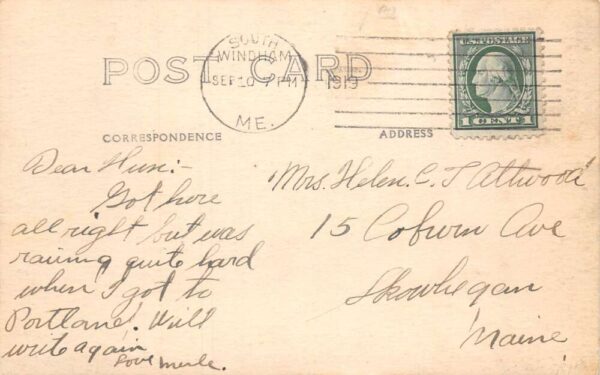 SOUTH
WINDHAM
SEP 10 7 PM
1919
ME.
U.S. POSTAGE
1 CENT 1
POST CARD
CORRESPONDENCE
ADDRESS
Dear Hun:-
Got here
all right but was
raining quite hard
when I got to
Portland. Will
write again
Love Merle.
Mrs. Helen C. T. Attwood
15 Coburn Ave
Skowhegan
Maine